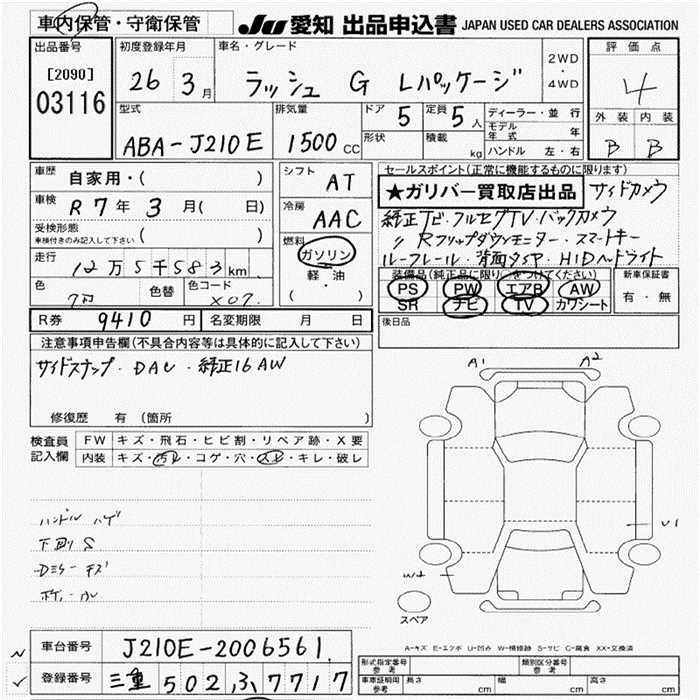 車内保管・守衛保管
JU 愛知 出品申込書 JAPAN USED CAR DEALERS ASSOCIATION
出品番号 [2090] 03116
初度登録年月 26 3月
車名・グレード ラッシュ G Lパッケージ
2WD・4WD
評価点 4
外装 内装
B B
型式 ABA-J210E
排気量 1500cc
ドア 5
定員 5人
形状
積載 kg
ディーラー・並行
モデル年式 年
ハンドル 左・右
車歴 自家用・( )
車検 R7年3月( 日)
受検形態 車検付きのみ記入して下さい ( )
走行 12万5千583km
色
色替
色コード X07
シフト AT
冷房 AAC
燃料 ガソリン
軽・油
( ・ )
セールスポイント(正常に機能するものに限ります)
★ガリバー買取店出品 サイドカメラ
純正ナビ・フルセグTV・バックカメラ
〃 Rフリップダウンモニター・スマートキー
ルーフレール・背面タイヤ・HIDヘッドライト
装備品(純正品に限り○をつけてください)
PS PW エアB AW
SR ナビ TV カワシート
新車保証書
有・無
R券 9410円
名変期限 月 日
後日品
注意事項申告欄(不具合内容等は具体的に記入して下さい)
サイドステップ・DAU・純正16AW
修復歴 有(箇所 )
検査員記入欄
FW キズ・飛石・ヒビ割・リペア跡・X要
内装 キズ・汚レ・コゲ・穴・スレ・キレ・破レ
ハンドル ハゲ
下廻り S
Dミラー キズ
A1 A2
U1
W2
スペア
A-キズ E-エクボ U-凹み W-補修跡 S-サビ C-腐食 XX-交換済
車台番号 J210E-2006561
登録番号 三重 502 ふ 7717
型式指定番号 参考
類別区分番号 参考
車庫証明用 参考 長さ cm 幅 cm 高さ cm